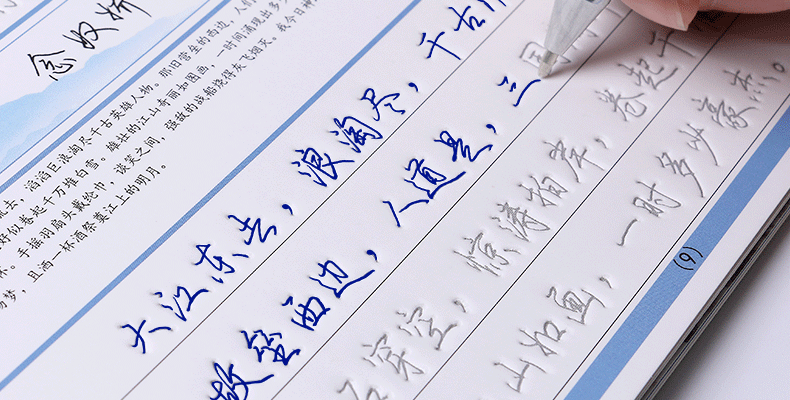 念奴娇
去，滔滔巨浪淘尽千古英雄人物。那旧营垒的西边，人们
好似卷起千万堆白雪。雄壮的江山奇丽如图画，一时间涌现出多少
。手摇羽扇头戴纶巾，谈笑之间，强敌的战船烧得灰飞烟灭。我今日神
梦，且洒一杯酒祭奠江上的明月。
大江东去，浪淘尽，千古
故垒西边，人道是，三国
穿空，惊涛拍岸，卷起千
山如画，一时多少豪杰。
(9)